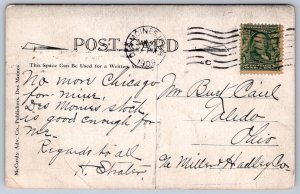 POST CARD
This Space Can be Used for a Written Message
DES MOINES
1908
No more Chicago
for mine.
Des Moines stock
is good enough for
me.
Regards to all
Mr Burt Cavil
Toledo
Ohio
℅ Miller & Hadley Co
McCurdy Adv. Co. Publishers, Des Moines